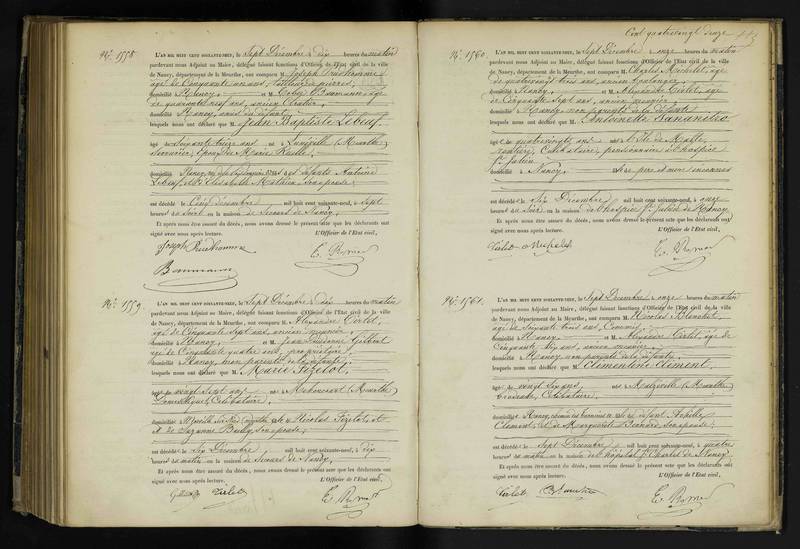 Cent quatrevingt douze
No. 1558
L'AN MIL HUIT CENT SOIXANTE-NEUF, le Sept Décembre à dix heures du matin
pardevant nous Adjoint au Maire, délégué faisant fonctions d'Officier de l'Etat civil de la ville
de Nancy, département de la Meurthe, ont comparu M. Joseph Prudhomme
âgé de Cinquante un ans, tailleur de pierres,
domicilié à Nancy, et M.
de quarante neuf ans, ancien
domicilié à Nancy, amis du défunt
lesquels nous ont déclaré que M. Jean Baptiste Leboeuf
âgé de Soixante treize ans né à Lunéville (Meurthe)
Serrurier, époux de Marie
domicilié à Nancy, fils des défunts Antoine
Leboeuf, et Elisabeth Mathieu, son épouse
est décédé le Cinq décembre mil huit cent soixante-neuf, à sept
heures du soir en la maison de Secours de Nancy.
Et après nous être assuré du décès, nous avons dressé le présent acte que les déclarants ont
signé avec nous après lecture. L'Officier de l'Etat civil,
Joseph Prudhomme
Baumann
No. 1559
L'AN MIL HUIT CENT SOIXANTE-NEUF, le Sept Décembre à dix heures du matin
pardevant nous Adjoint au Maire, délégué faisant fonctions d'Officier de l'Etat civil de la ville
de Nancy, département de la Meurthe, ont comparu M. Alexandre Virlet,
âgé de Cinquante Sept ans, ancien meunier,
domicilié à Nancy, et M. Jean
âgé de Cinquante quatre ans, propriétaire,
domicilié à Nancy, non parents de la défunte
lesquels nous ont déclaré que M. Marie Fizelot,
âgée de vingt Sept ans née à (Meurthe)
Domestique, Célibataire,
domiciliée à fille de Nicolas Fizelot, et
de Suzanne son épouse,
est décédée le Six Décembre, mil huit cent soixante-neuf, à dix
heures du matin en la maison de Secours de Nancy,
Et après nous être assuré du décès, nous avons dressé le présent acte que les déclarants ont
signé avec nous après lecture. L'Officier de l'Etat civil,
Virlet
No. 1560
L'AN MIL HUIT CENT SOIXANTE-NEUF, le Sept Décembre à onze heures du matin
pardevant nous Adjoint au Maire, délégué faisant fonctions d'Officier de l'Etat civil de la ville
de Nancy, département de la Meurthe, ont comparu M. Charles Michelet, âgé
de quatrevingt trois ans, ancien boulanger,
domicilié à Nancy, et M. Alexandre Virlet, âgé
de Cinquante Sept ans, ancien meunier,
domicilié à Nancy, non parents de la défunte
lesquels nous ont déclaré que M. Antoinette
âgée de quatrevingts ans née à l'Ile de Malte
rentière, Célibataire, pensionnaire à l'hospice
St. Julien
domiciliée à Nancy, de père et mère inconnus
est décédée le Six Décembre mil huit cent soixante-neuf, à onze
heures du soir en la maison de l'hospice St. Julien de Nancy.
Et après nous être assuré du décès, nous avons dressé le présent acte que les déclarants ont
signé avec nous après lecture. L'Officier de l'Etat civil,
Virlet Michelet
No. 1561
L'AN MIL HUIT CENT SOIXANTE-NEUF, le Sept Décembre à onze heures du matin
pardevant nous Adjoint au Maire, délégué faisant fonctions d'Officier de l'Etat civil de la ville
de Nancy, département de la Meurthe, ont comparu M. Nicolas Blanchet,
âgé de Soixante trois ans, Commis,
domicilié à Nancy, et M. Alexandre Virlet, âgé de
Cinquante Sept ans, ancien meunier,
domicilié à Nancy non parents de la défunte,
lesquels nous ont déclaré que M. Clémentine Clément,
âgée de vingt Six ans, née à Malzéville (Meurthe)
Brodeuse, Célibataire,
domiciliée à Nancy, fille de
Clément, et de Marguerite Bernard, son épouse,
est décédée le Sept Décembre, mil huit cent soixante-neuf, à quatre
heures du matin en la maison de l'hôpital St. Charles de Nancy
Et après nous être assuré du décès, nous avons dressé le présent acte que les déclarants ont
signé avec nous après lecture. L'Officier de l'Etat civil,
Virlet